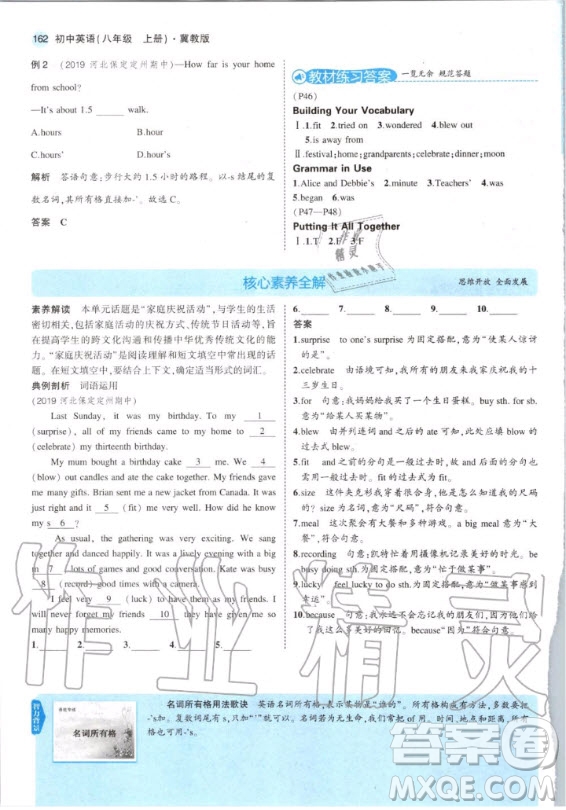 162 初中英语(八年级 上册)·冀教版
例2 (2019 河北保定定州期中)—How far is your home
from school?
—It's about 1.5 ______ walk.
A.hours B.hour
C.hours' D.hour's
解析 答语句意:步行大约1.5小时的路程。以-s结尾的复
数名词,其所有格直接加-'。故选C。
答案 C
教材练习答案 一览无余 规范答题
(P46)
Building Your Vocabulary
Ⅰ.1.fit 2.tried on 3.wondered 4.blew out
5.is away from
Ⅱ.festival;home;grandparents;celebrate;dinner;moon
Grammar in Use
1.Alice and Debbie's 2.minute 3.Teachers' 4.was
5.began 6.was
(P47—P48)
Putting It All Together
Ⅰ.1.T 2.F 3.F
核心素养全解 思维开放 全面发展
素养解读 本单元话题是“家庭庆祝活动”,与学生的生活
密切相关,包括家庭活动的庆祝方式、传统节日活动等丰
富的跨文化沟通和中华优秀传统文化的文化元素。
“家庭庆祝活动”是阅读理解和短文填空中常出现的话题。
在短文填空中,要结合上下文,确定适当形式的词汇。
典例剖析 词语运用
(2019 河北保定定州期中)
Last Sunday, it was my birthday. To my 1
(surprise), all my friends came to my home to 2
(celebrate) my thirteenth birthday.
My mum bought a birthday cake 3 me. We 4
(blow) out candles and ate the cake together. My friends gave
me many gifts. Brian sent me a new jacket from Canada. It was
just right and it 5 (fit) me very well. How did he know
my s 6 ?
As usual, the gathering was very exciting. We sang
together and danced happily. It was a wonderful time. We had a big
m 7 , lots of games and good conversation. Kate was busy
8 (record) good times with a camera.
I always feel very 9 (luck) to have my friends. I
will never forget my friends 10 they gave me so many
happy memories.
1.______ 2.______ 3.______ 4.______ 5.______
6.______ 7.______ 8.______ 9.______ 10.______
答案
1.surprise to one's surprise为固定搭配,意为“使某人惊讶
的是”。
2.celebrate 由语境可知,我的朋友们来我家庆祝我的十
三岁生日。
3.for 句意:我妈妈给我买了一个生日蛋糕。buy sth. for sb.
意为“给某人买某物”。
4.blew 由并列连词and之后的ate可知,and之前也应用
一般过去时,故填blew。
5.fit and之前的句子是一般过去时,故and之后也用一般
过去时,fit的过去式是fit。
6.size 这件夹克衫我穿着很合身,他是怎么知道我的尺码
的? size为名词,意为“尺码”,符合句意。
7.meal 这次聚会有大餐和多种游戏。a big meal意为“大
餐”。
8.recording 句意:凯特忙着用摄像机记录美好的时光。be
busy doing sth.为固定搭配,意为“忙于做某事”。
9.lucky feel lucky to do sth.意为“做某事感到
幸运”。
10.because 句意:我永远不会忘记我的朋友们,因为他们给
了我这么多美好的回忆。because“因为”符合句意。
智力背景
名词所有格
名词所有格用法歌诀 英语名词所有格,表示某物是“谁的”。若为生命类名词,词后要把
-'s加。复数词尾有s,只加“'”就可以。名词若为无生命,我们常把of用。时间、地点和某些名词,也可把-'s来加。
作业精灵
作业精灵
答案圈
MXQE.COM